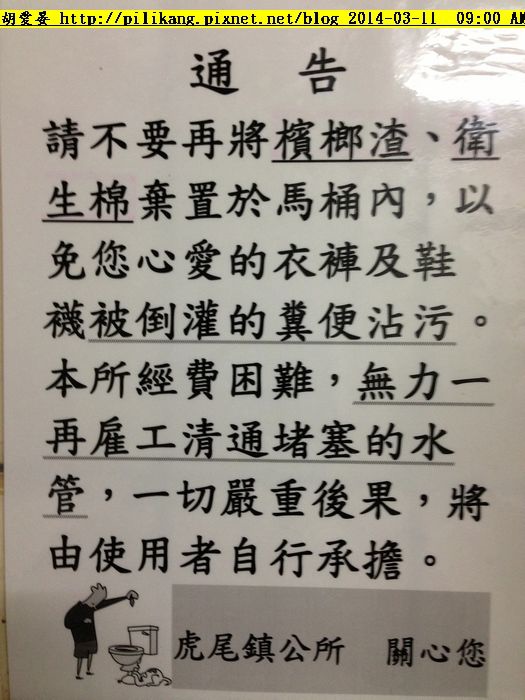 胡愛晏 http://pilikang.pixnet.net/blog 2014-03-11 09:00 AM
通 告
請不要再將檳榔渣、衛
生棉棄置於馬桶內，以
免您心愛的衣褲及鞋
襪被倒灌的糞便沾污。
本所經費困難，無力一
再雇工清通堵塞的水
管，一切嚴重後果，將
由使用者自行承擔。
虎尾鎮公所 關心您